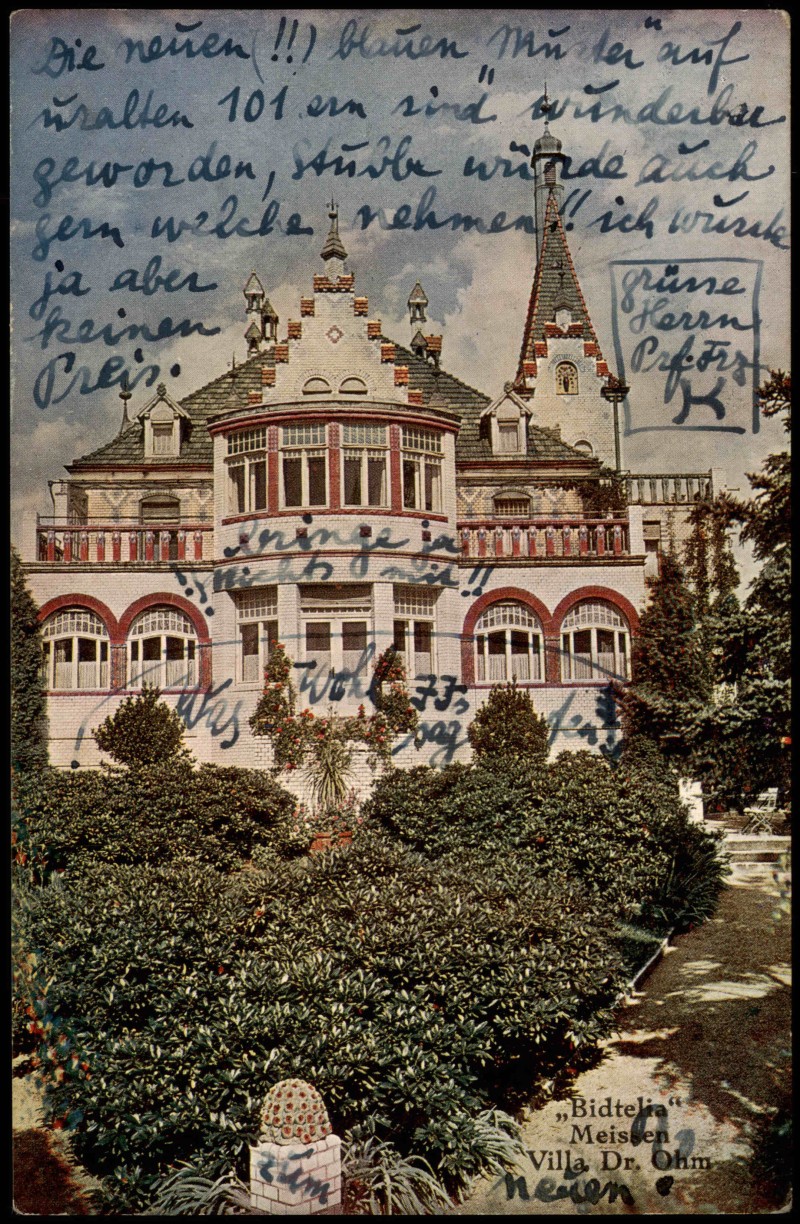 Die neuen (!!) blauen „Muster" auf
uralten 101 ern sind wunderbar
geworden, Stubbe würde auch
gern welche nehmen! ich wusste
ja aber
keinen
Preis.
grüsse
Herrn
Prf. Frz
K
bringe ja
nichts mit!!
Was Wohl
sag den
„Bidtelia“
Meissen
Villa Dr. Ohm
zum
neuen